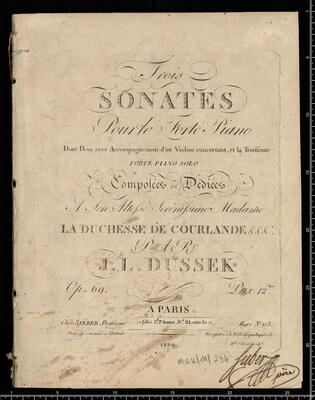 Trois
SONATES
Pour le Forte Piano
Dont Deux avec Accompagnement d'un Violon concertant, et la Troisieme
FORTE PIANO SOLO
Composées et Dédiées
A Son Altesse Serénissime Madame
LA DUCHESSE DE COURLANDE &.&.&.
PAR
J. L. DUSSEK
Op. 69. Prix 12
A PARIS
Chez SIEBER, Professeur
1884
Sieber
père
5 10 15 20 25